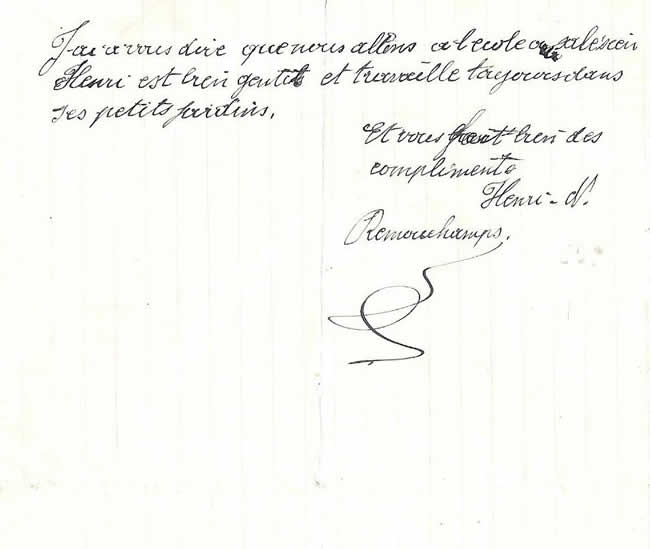 J'ai a vous dire que nous allons a l'ecole salésien
Henri est bien gentil et travaille toujours dans
ses petits jardins.
Et vous fait bien des
compliments
Henri - N.
Remouchamps.